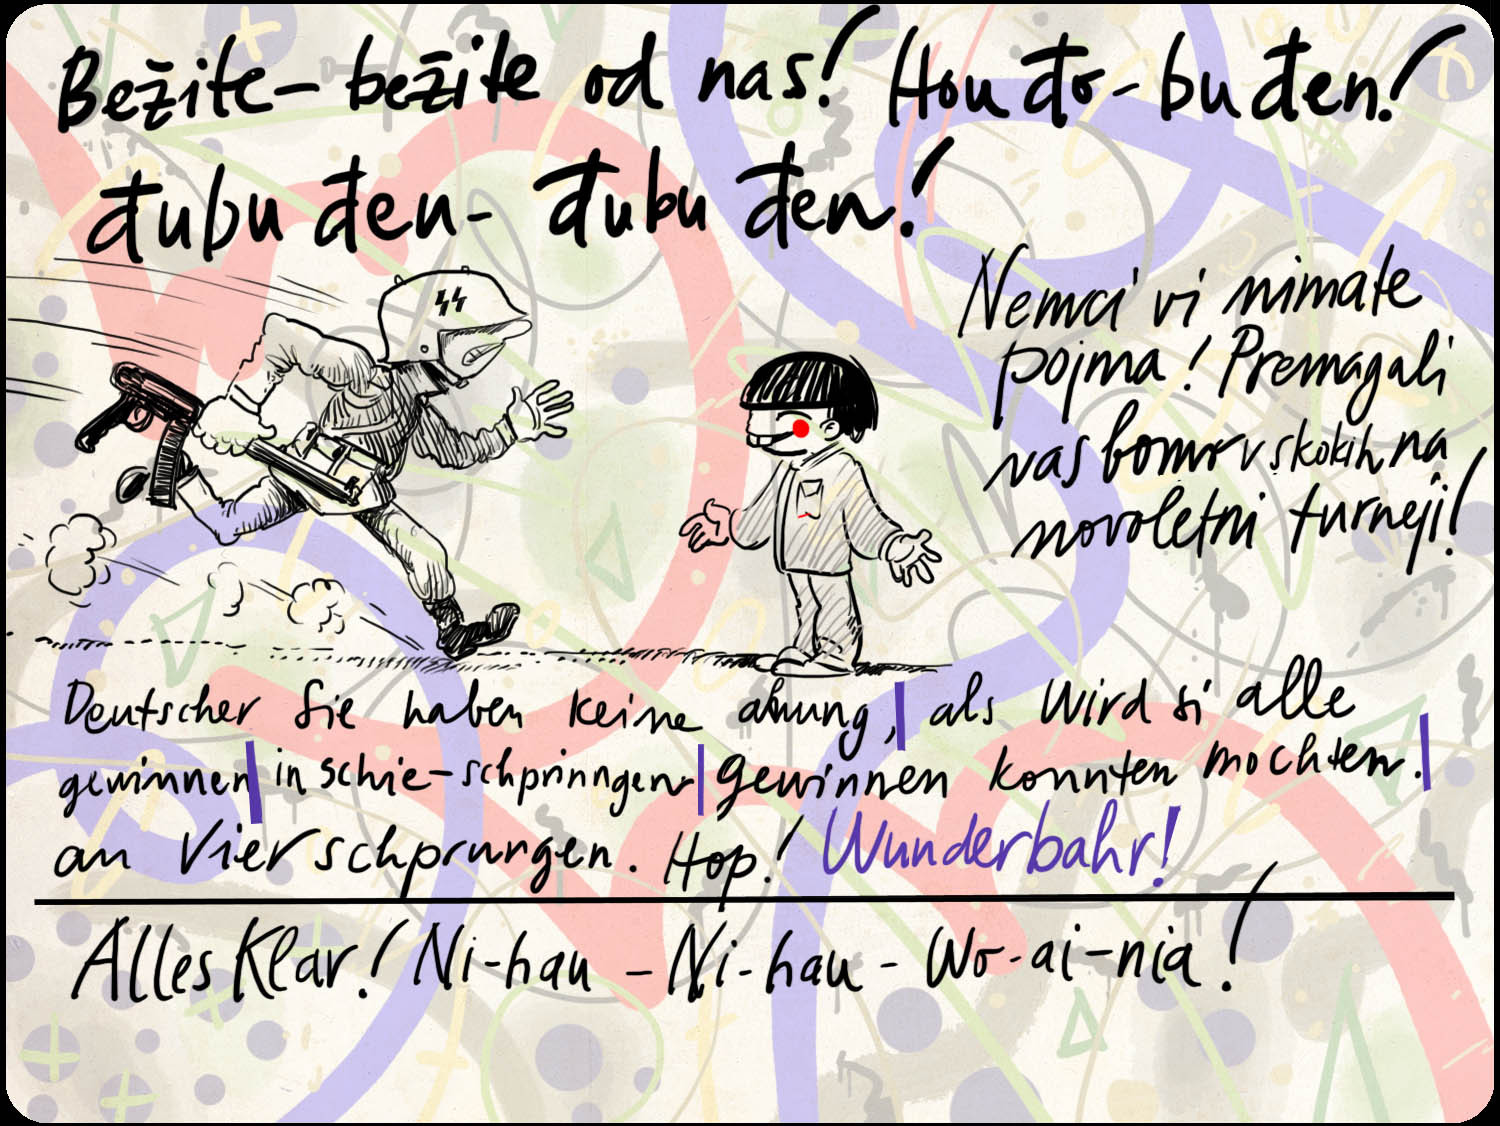 Bežite-bežite od nas! Hou đo-bu đen!
đubu đen- đubu đen!
Nemci vi nimate
pojma! Premagali
vas bomo v skokih na
novoletni turneji!
Deutscher Sie haben keine ahnung, als Wird si alle
gewinnen in schie-schprinngen gewinnen konnten mochten.
an Vierschprungen. Hop! Wunderbahr!
Alles Klar! Ni-hau - Ni-hau - Wo-ai-nia!